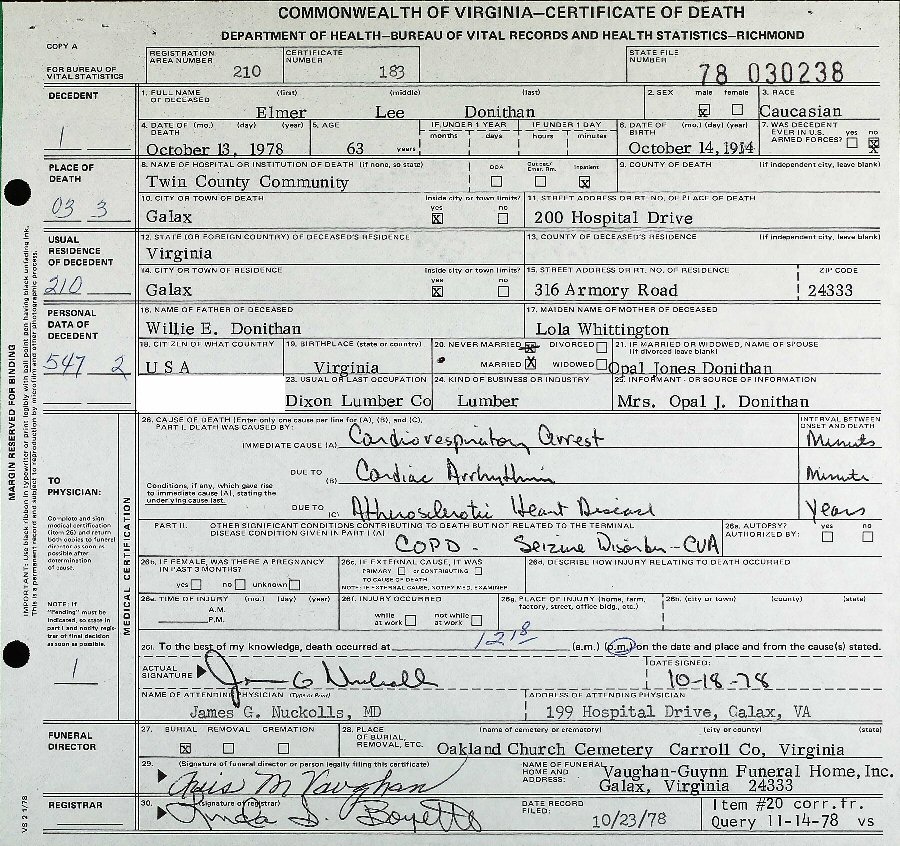 COMMONWEALTH OF VIRGINIA—CERTIFICATE OF DEATH
DEPARTMENT OF HEALTH—BUREAU OF VITAL RECORDS AND HEALTH STATISTICS—RICHMOND
COPY A
FOR BUREAU OF VITAL STATISTICS
REGISTRATION AREA NUMBER 210
CERTIFICATE NUMBER 183
STATE FILE NUMBER 78 030238
DECEDENT
1
1. FULL NAME OF DECEASED (first) (middle) (last)
Elmer Lee Donithan
2. SEX male female
3. RACE
Caucasian
4. DATE OF DEATH (mo.) (day) (year)
October 13, 1978
5. AGE
63 years
IF UNDER 1 YEAR months days
IF UNDER 1 DAY hours minutes
6. DATE OF BIRTH (mo.) (day) (year)
October 14, 1914
7. WAS DECEDENT EVER IN U.S. ARMED FORCES? yes no
PLACE OF DEATH
03 3
8. NAME OF HOSPITAL OR INSTITUTION OF DEATH (if none, so state)
Twin County Community
DOA Out pat/ Emer. Rm. Inpatient
9. COUNTY OF DEATH (if independent city, leave blank)
10. CITY OR TOWN OF DEATH Inside city or town limits? yes no
Galax
11. STREET ADDRESS OR RT. NO. OF PLACE OF DEATH
200 Hospital Drive
USUAL RESIDENCE OF DECEDENT
210
12. STATE (OR FOREIGN COUNTRY) OF DECEASED'S RESIDENCE
Virginia
13. COUNTY OF DECEASED'S RESIDENCE (if independent city, leave blank)
14. CITY OR TOWN OF RESIDENCE Inside city or town limits? yes no
Galax
15. STREET ADDRESS OR RT. NO. OF RESIDENCE ZIP CODE
316 Armory Road 24333
PERSONAL DATA OF DECEDENT
547 2
16. NAME OF FATHER OF DECEASED
Willie E. Donithan
17. MAIDEN NAME OF MOTHER OF DECEASED
Lola Whittington
18. CITIZEN OF WHAT COUNTRY
USA
19. BIRTHPLACE (state or country)
Virginia
20. NEVER MARRIED DIVORCED
MARRIED WIDOWED
21. IF MARRIED OR WIDOWED, NAME OF SPOUSE (if divorced leave blank)
Opal Jones Donithan
23. USUAL OR LAST OCCUPATION
Dixon Lumber Co
24. KIND OF BUSINESS OR INDUSTRY
Lumber
25. INFORMANT - OR SOURCE OF INFORMATION
Mrs. Opal J. Donithan
MARGIN RESERVED FOR BINDING
IMPORTANT: Use black ribbon in typewriter or print legibly with ball point pen having black unfading ink.
This is a permanent record and subject to reproduction by microfilm and other photographic process.
TO PHYSICIAN:
Complete and sign medical certification (item 26) and return both copies to funeral director as soon as possible after determination of cause.
NOTE: If "Pending" must be indicated, so state in part I and notify registrar of final decision as soon as possible.
1
MEDICAL CERTIFICATION
26. CAUSE OF DEATH (Enter only one cause per line for (A), (B), and (C).
PART I. DEATH WAS CAUSED BY:
INTERVAL BETWEEN ONSET AND DEATH
IMMEDIATE CAUSE (A) Cardiorespiratory Arrest Minutes
DUE TO (B) Cardiac Arrhythmia Minutes
Conditions, if any, which gave rise to immediate cause (A), stating the underlying cause last.
DUE TO (C) Atherosclerotic Heart Disease Years
PART II. OTHER SIGNIFICANT CONDITIONS CONTRIBUTING TO DEATH BUT NOT RELATED TO THE TERMINAL DISEASE CONDITION GIVEN IN PART I (A)
COPD - Seizure Disorder - CVA
26a. AUTOPSY? AUTHORIZED BY: yes no
26b. IF FEMALE, WAS THERE A PREGNANCY IN PAST 3 MONTHS?
yes no unknown
26c. IF EXTERNAL CAUSE, IT WAS
PRIMARY or CONTRIBUTING
TO CAUSE OF DEATH
NOTE: IF EXTERNAL CAUSE, NOTIFY MED. EXAMINER
26d. DESCRIBE HOW INJURY RELATING TO DEATH OCCURRED
26e. TIME OF INJURY (mo.) (day) (year)
A.M.
P.M.
26f. INJURY OCCURRED
while at work not while at work
26g. PLACE OF INJURY (home, farm, factory, street, office bldg., etc.)
26h. (city or town) (county) (state)
26i. To the best of my knowledge, death occurred at 1218 (a.m.) (p.m.) on the date and place and from the cause(s) stated.
ACTUAL SIGNATURE James G Nuckolls
DATE SIGNED: 10-18-78
NAME OF ATTENDING PHYSICIAN (Type or Print)
James G. Nuckolls, MD
ADDRESS OF ATTENDING PHYSICIAN
199 Hospital Drive, Galax, VA
FUNERAL DIRECTOR
27. BURIAL REMOVAL CREMATION
28. PLACE OF BURIAL, REMOVAL, ETC. (name of cemetery or crematory) (city or county) (state)
Oakland Church Cemetery Carroll Co, Virginia
29. (Signature of funeral director or person legally filing this certificate)
M Vaughan
NAME OF FUNERAL HOME AND ADDRESS:
Vaughan-Guynn Funeral Home, Inc.
Galax, Virginia 24333
REGISTRAR
30. (signature of registrar)
Linda S. Boyette
DATE RECORD FILED: 10/23/78
Item #20 corr.fr.
Query 11-14-78 vs
VS 2 1/78